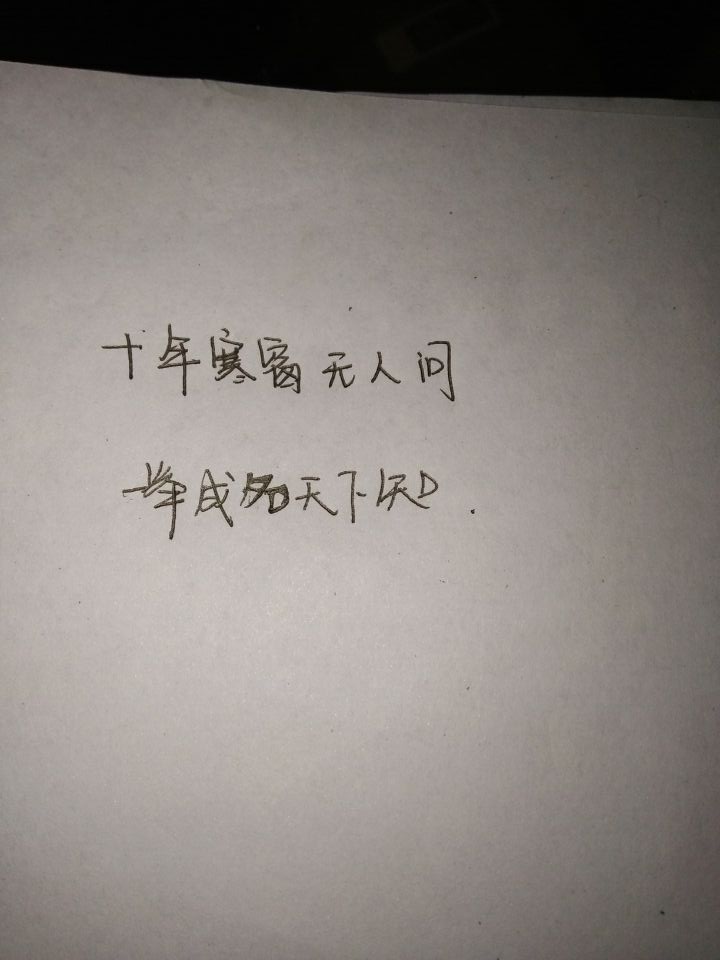 十年寒窗无人问
一举成名天下知.